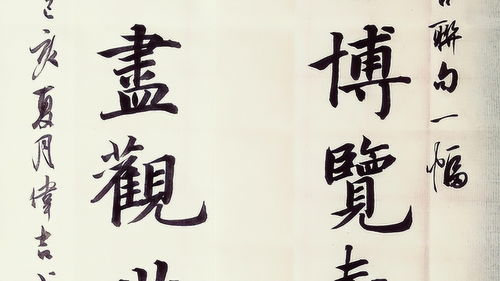 聯句一幅
博覽
盡觀
己亥夏月偉吉